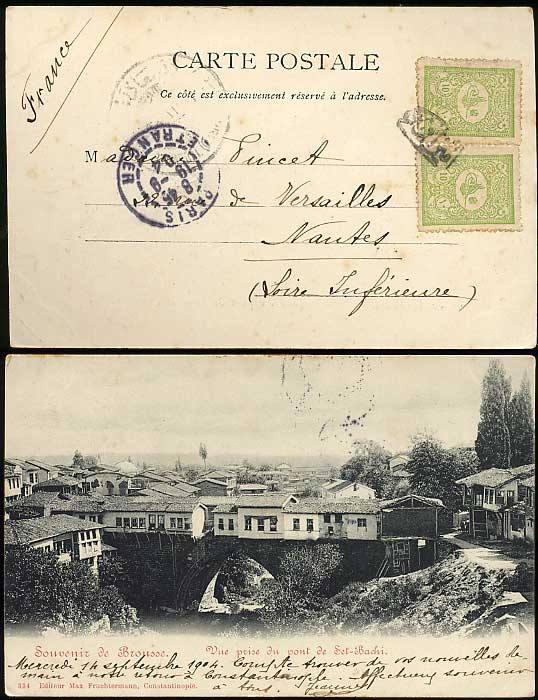 France
CARTE POSTALE
Ce côté est exclusivement réservé à l'adresse.
PARIS
ETRANGER
M Pincet
de Versailles
Nantes
(Loire Inférieure)
Souvenir de Brousse. Vue prise du pont de Set-Bachi.
Mercredi 14 septembre 1904. Compte trouver de vos nouvelles de
main à notre retour à Constantinople. Affectueux souvenir
324 Editeur Max Fruchtermann, Constantinople.
à tous.